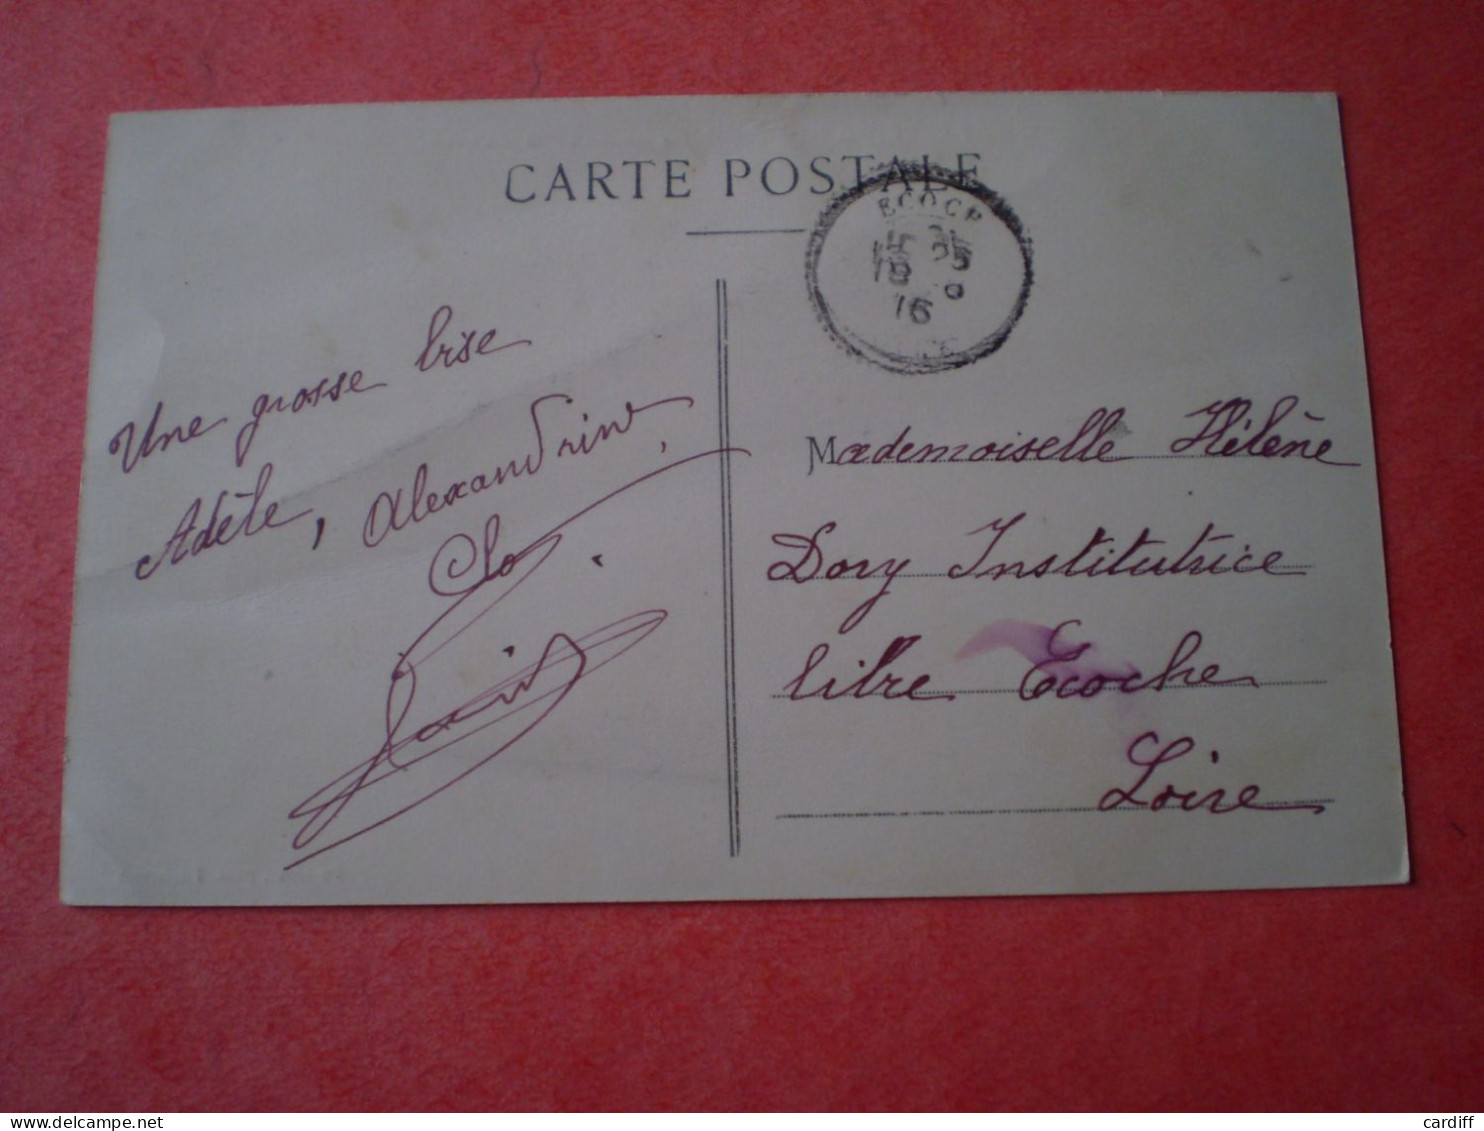 CARTE POSTALE
ECOCH
16
Une grosse bise
Adèle, Alexandrine,
Clo
Mademoiselle Hélène
Dory Institutrice
libre Ecoche
Loire
cardiff
delcampe.net